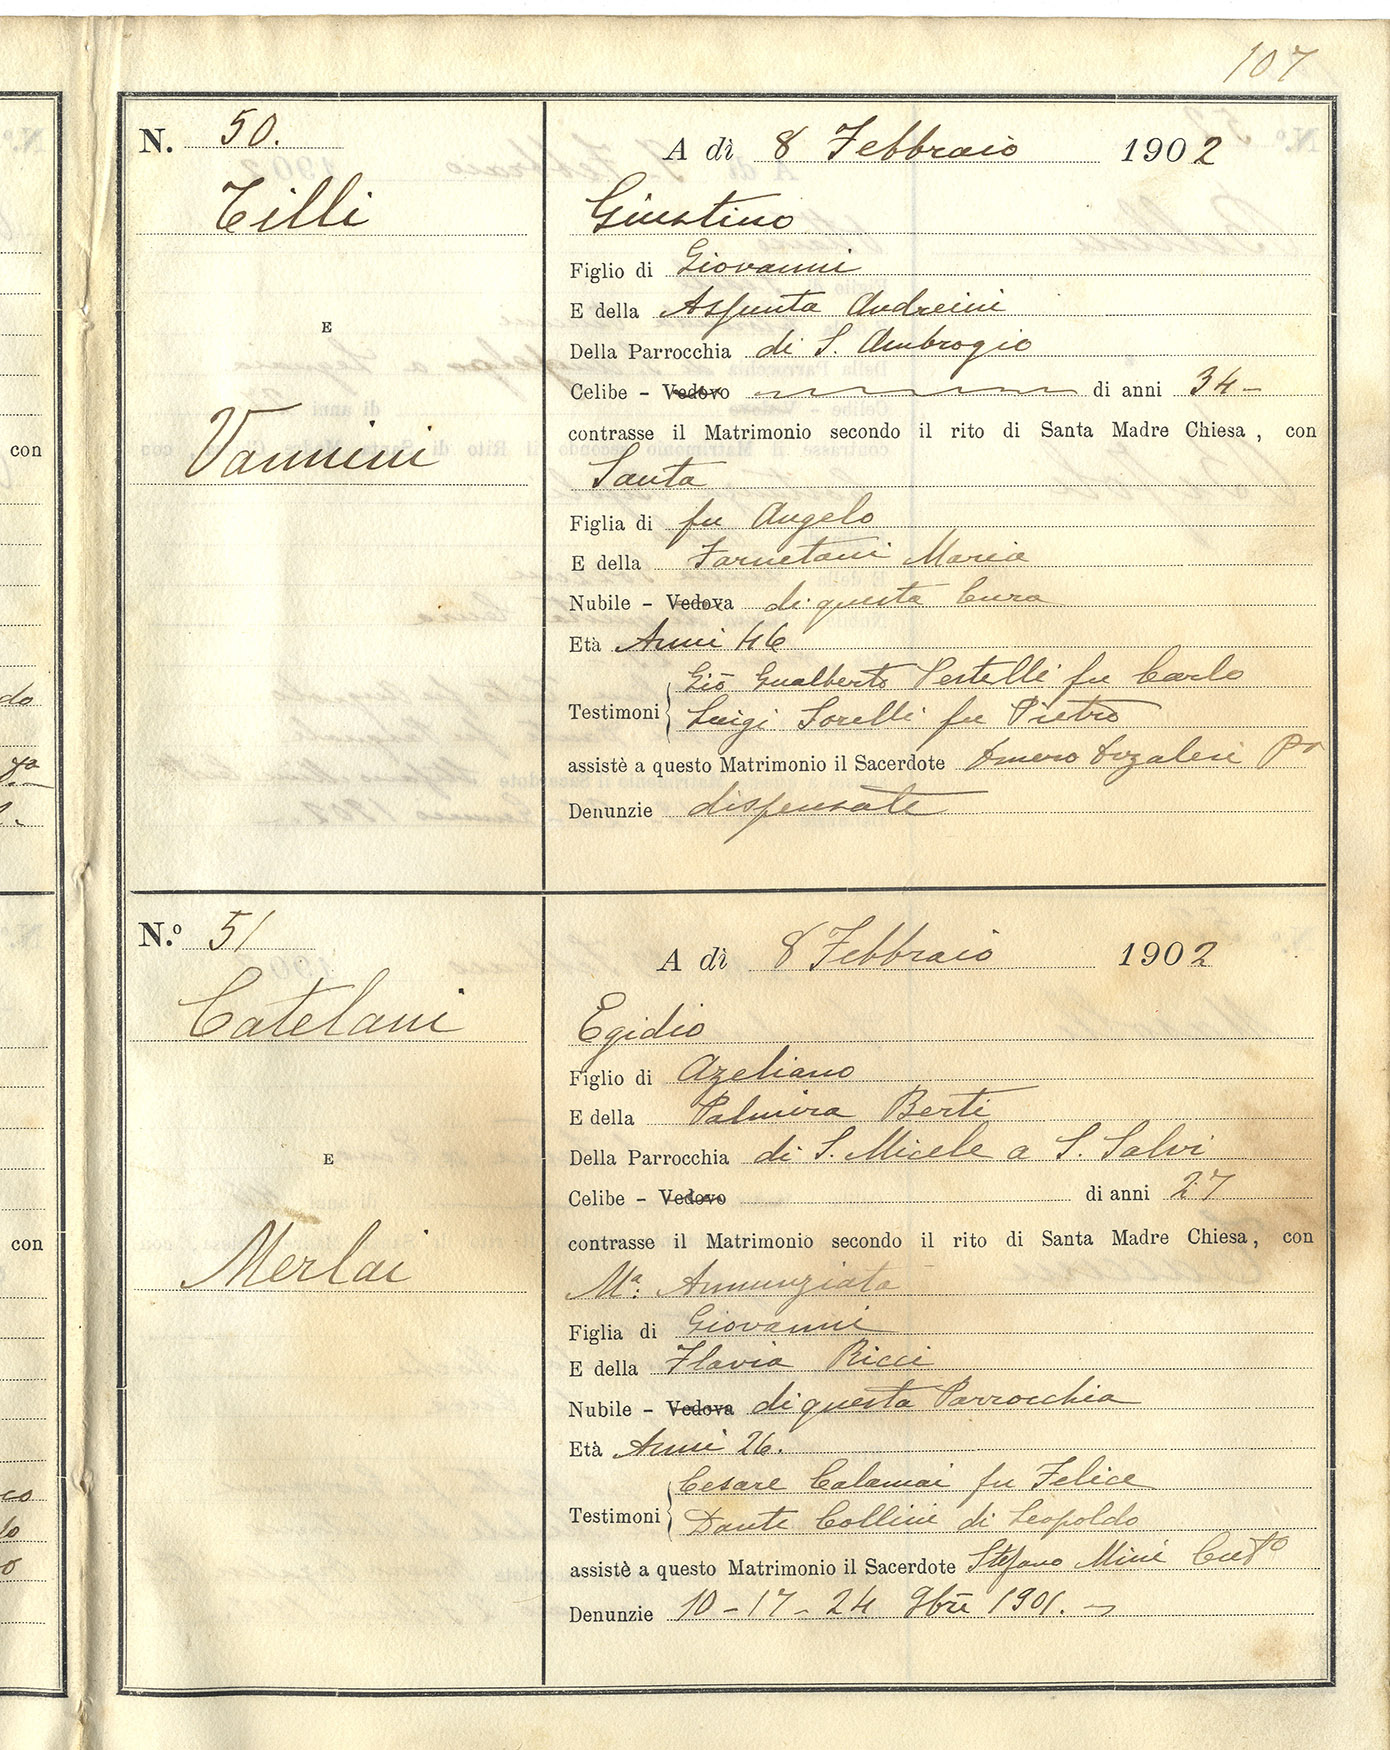 107
N. 50.
Tilli
E
Vannini
A dì 8 Febbraio 1902
Giustino
Figlio di Giovanni
E della Assunta Andreini
Della Parrocchia di S. Ambrogio
Celibe - Vedovo di anni 34 -
contrasse il Matrimonio secondo il rito di Santa Madre Chiesa, con
Santa
Figlia di fu Angelo
E della Farnetani Maria
Nubile - Vedova di questa Cura
Età Anni 46
Gio Gualberto Pestelli fu Carlo
Testimoni
Luigi Sorelli fu Pietro
assistè a questo Matrimonio il Sacerdote
Denunzie dispensate
N.º 51
Catelani
E
Merlai
A dì 8 Febbraio 1902
Egidio
Figlio di Azeliano
E della Palmira Berti
Della Parrocchia di S. Micele a S. Salvi
Celibe - Vedovo di anni 27
contrasse il Matrimonio secondo il rito di Santa Madre Chiesa, con
Mª: Annunziata
Figlia di Giovanni
E della Flavia Ricci
Nubile - Vedova di questa Parrocchia
Età Anni 26.
Cesare Calamai fu Felice
Testimoni
Dante Collini di Leopoldo
assistè a questo Matrimonio il Sacerdote Stefano Mini Curº
Denunzie 10 - 17 - 24 9bre 1901.
con
con